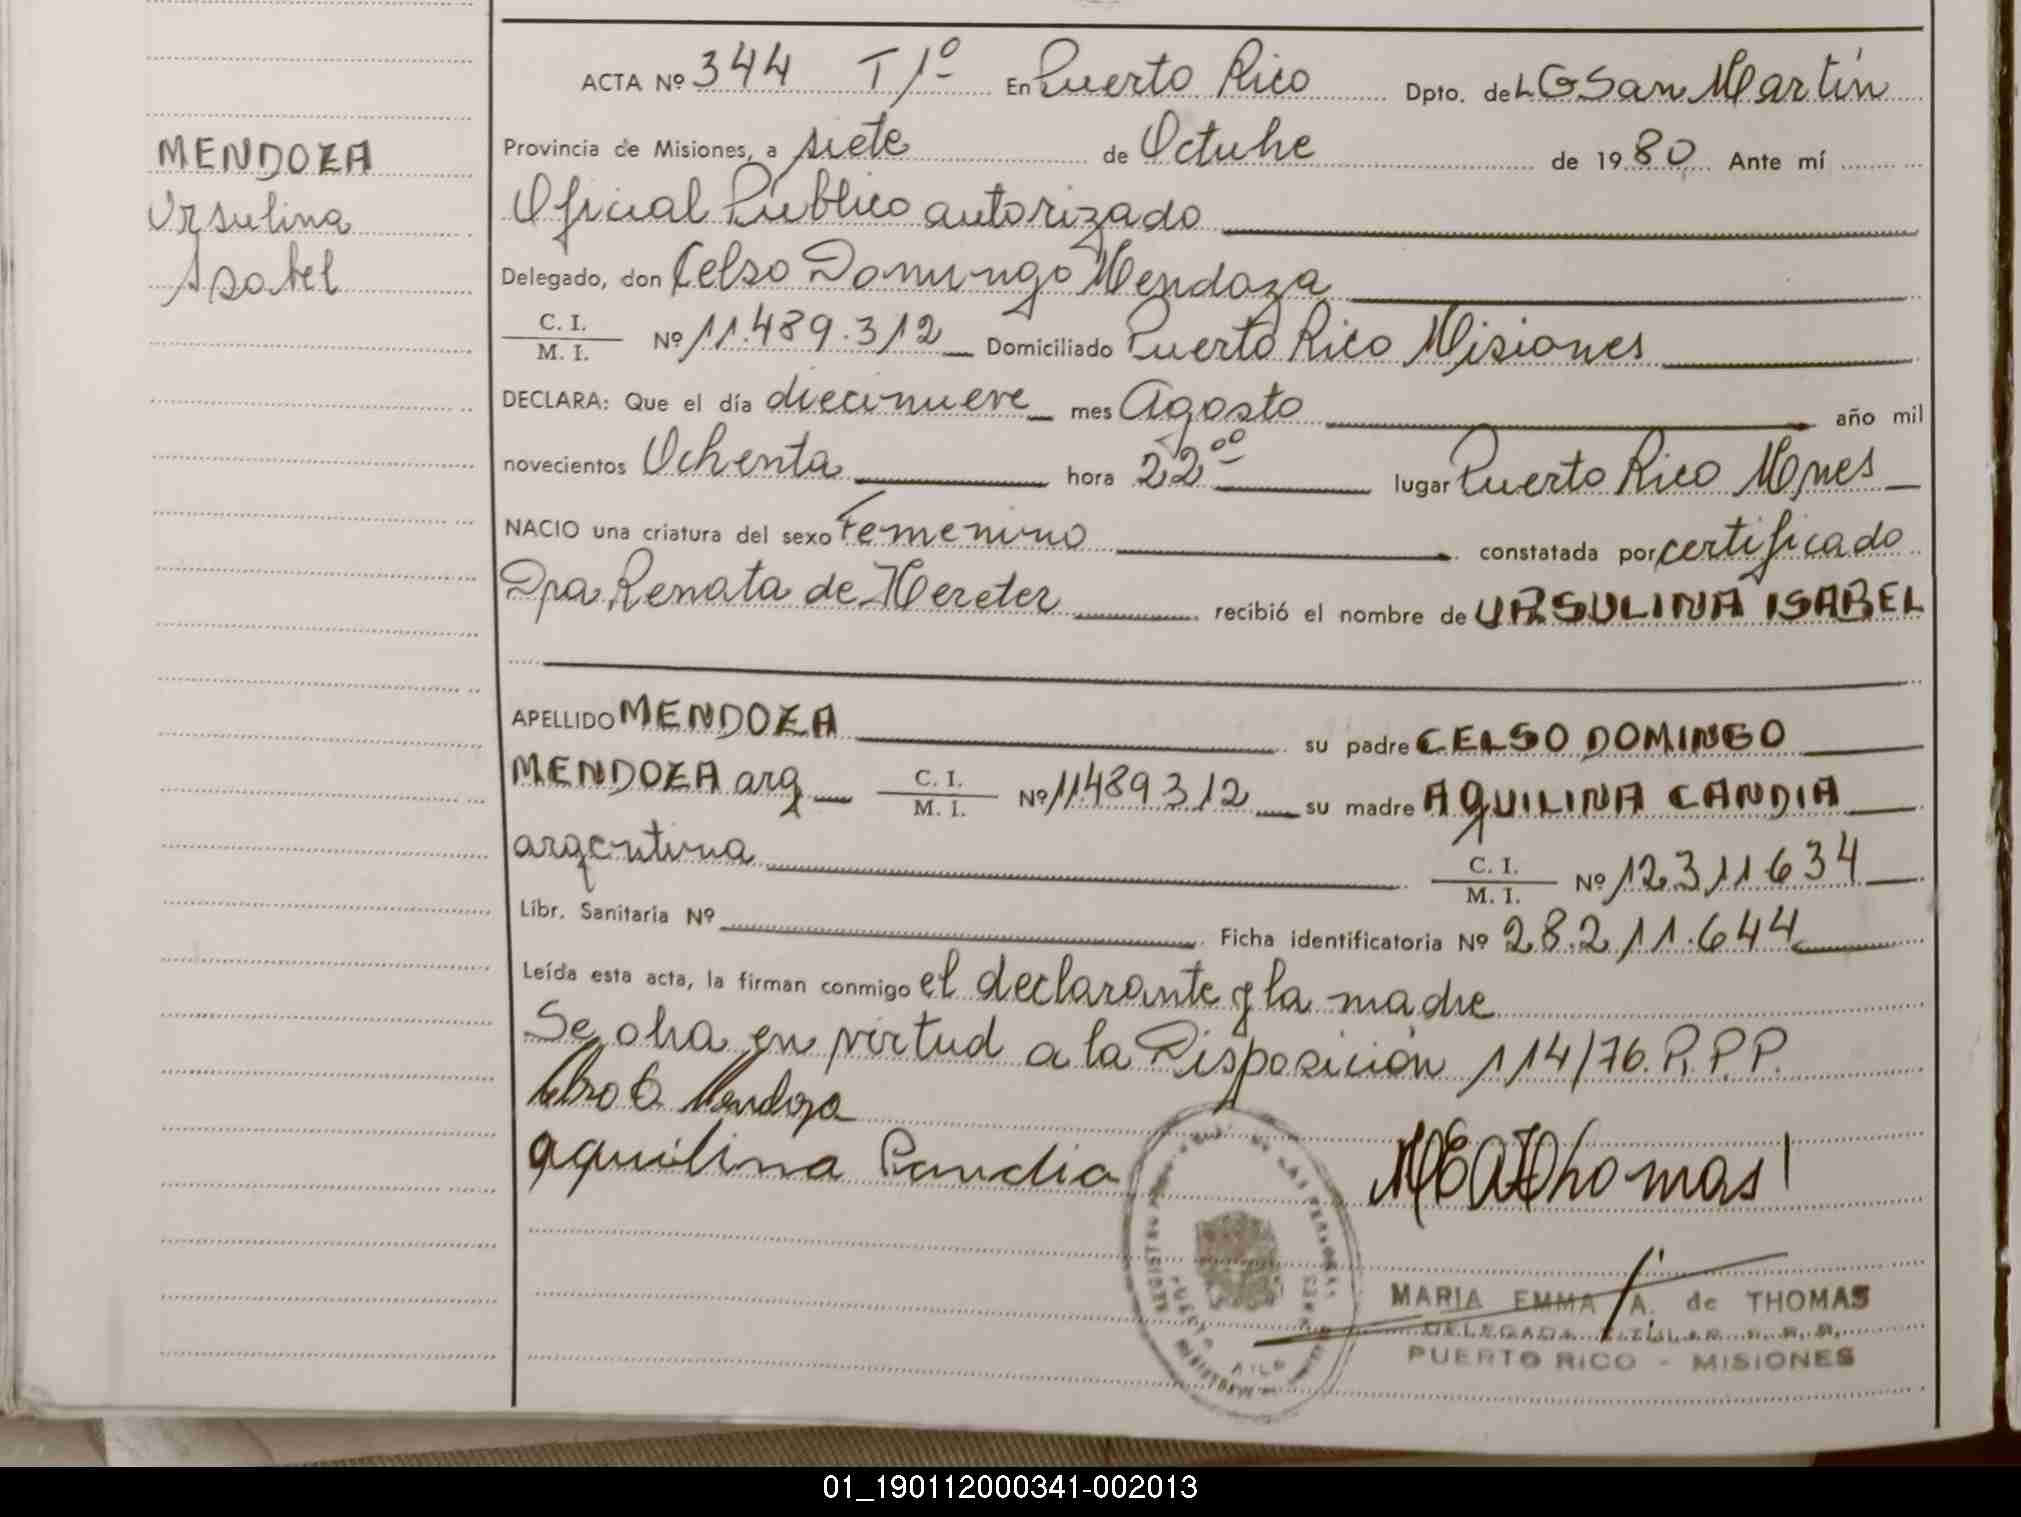 ACTA Nº 344 T 1º En Puerto Rico Dpto. de L G San Martín
MENDOZA
Ursulina
Isabel
Provincia de Misiones, a siete de Octubre de 1980 Ante mí
Oficial Público autorizado
Delegado, don Celso Domingo Mendoza
C. I.
M. I.
Nº 11.489.312 Domiciliado Puerto Rico Misiones
DECLARA: Que el día diecinueve mes Agosto año mil
novecientos Ochenta hora 22 00 lugar Puerto Rico Mnes
NACIO una criatura del sexo Femenino constatada por certificado
Dra Renata de Hereter recibió el nombre de URSULINA ISABEL
APELLIDO MENDOZA su padre CELSO DOMINGO
MENDOZA arg C. I. M. I. Nº 11489312 su madre AQUILINA CANDIA
argentina C. I. M. I. Nº 12311634
Libr. Sanitaria Nº Ficha identificatoria Nº 28.211.644
Leída esta acta, la firman conmigo el declarante y la madre
Se obra en virtud a la Disposición 114/76. R.P.P.
Celso D. Mendoza
Aquilina Candia
MEAThomas
MARIA EMMA A. de THOMAS
DELEGADA TITULAR R. P. P.
PUERTO RICO - MISIONES
01_190112000341-002013